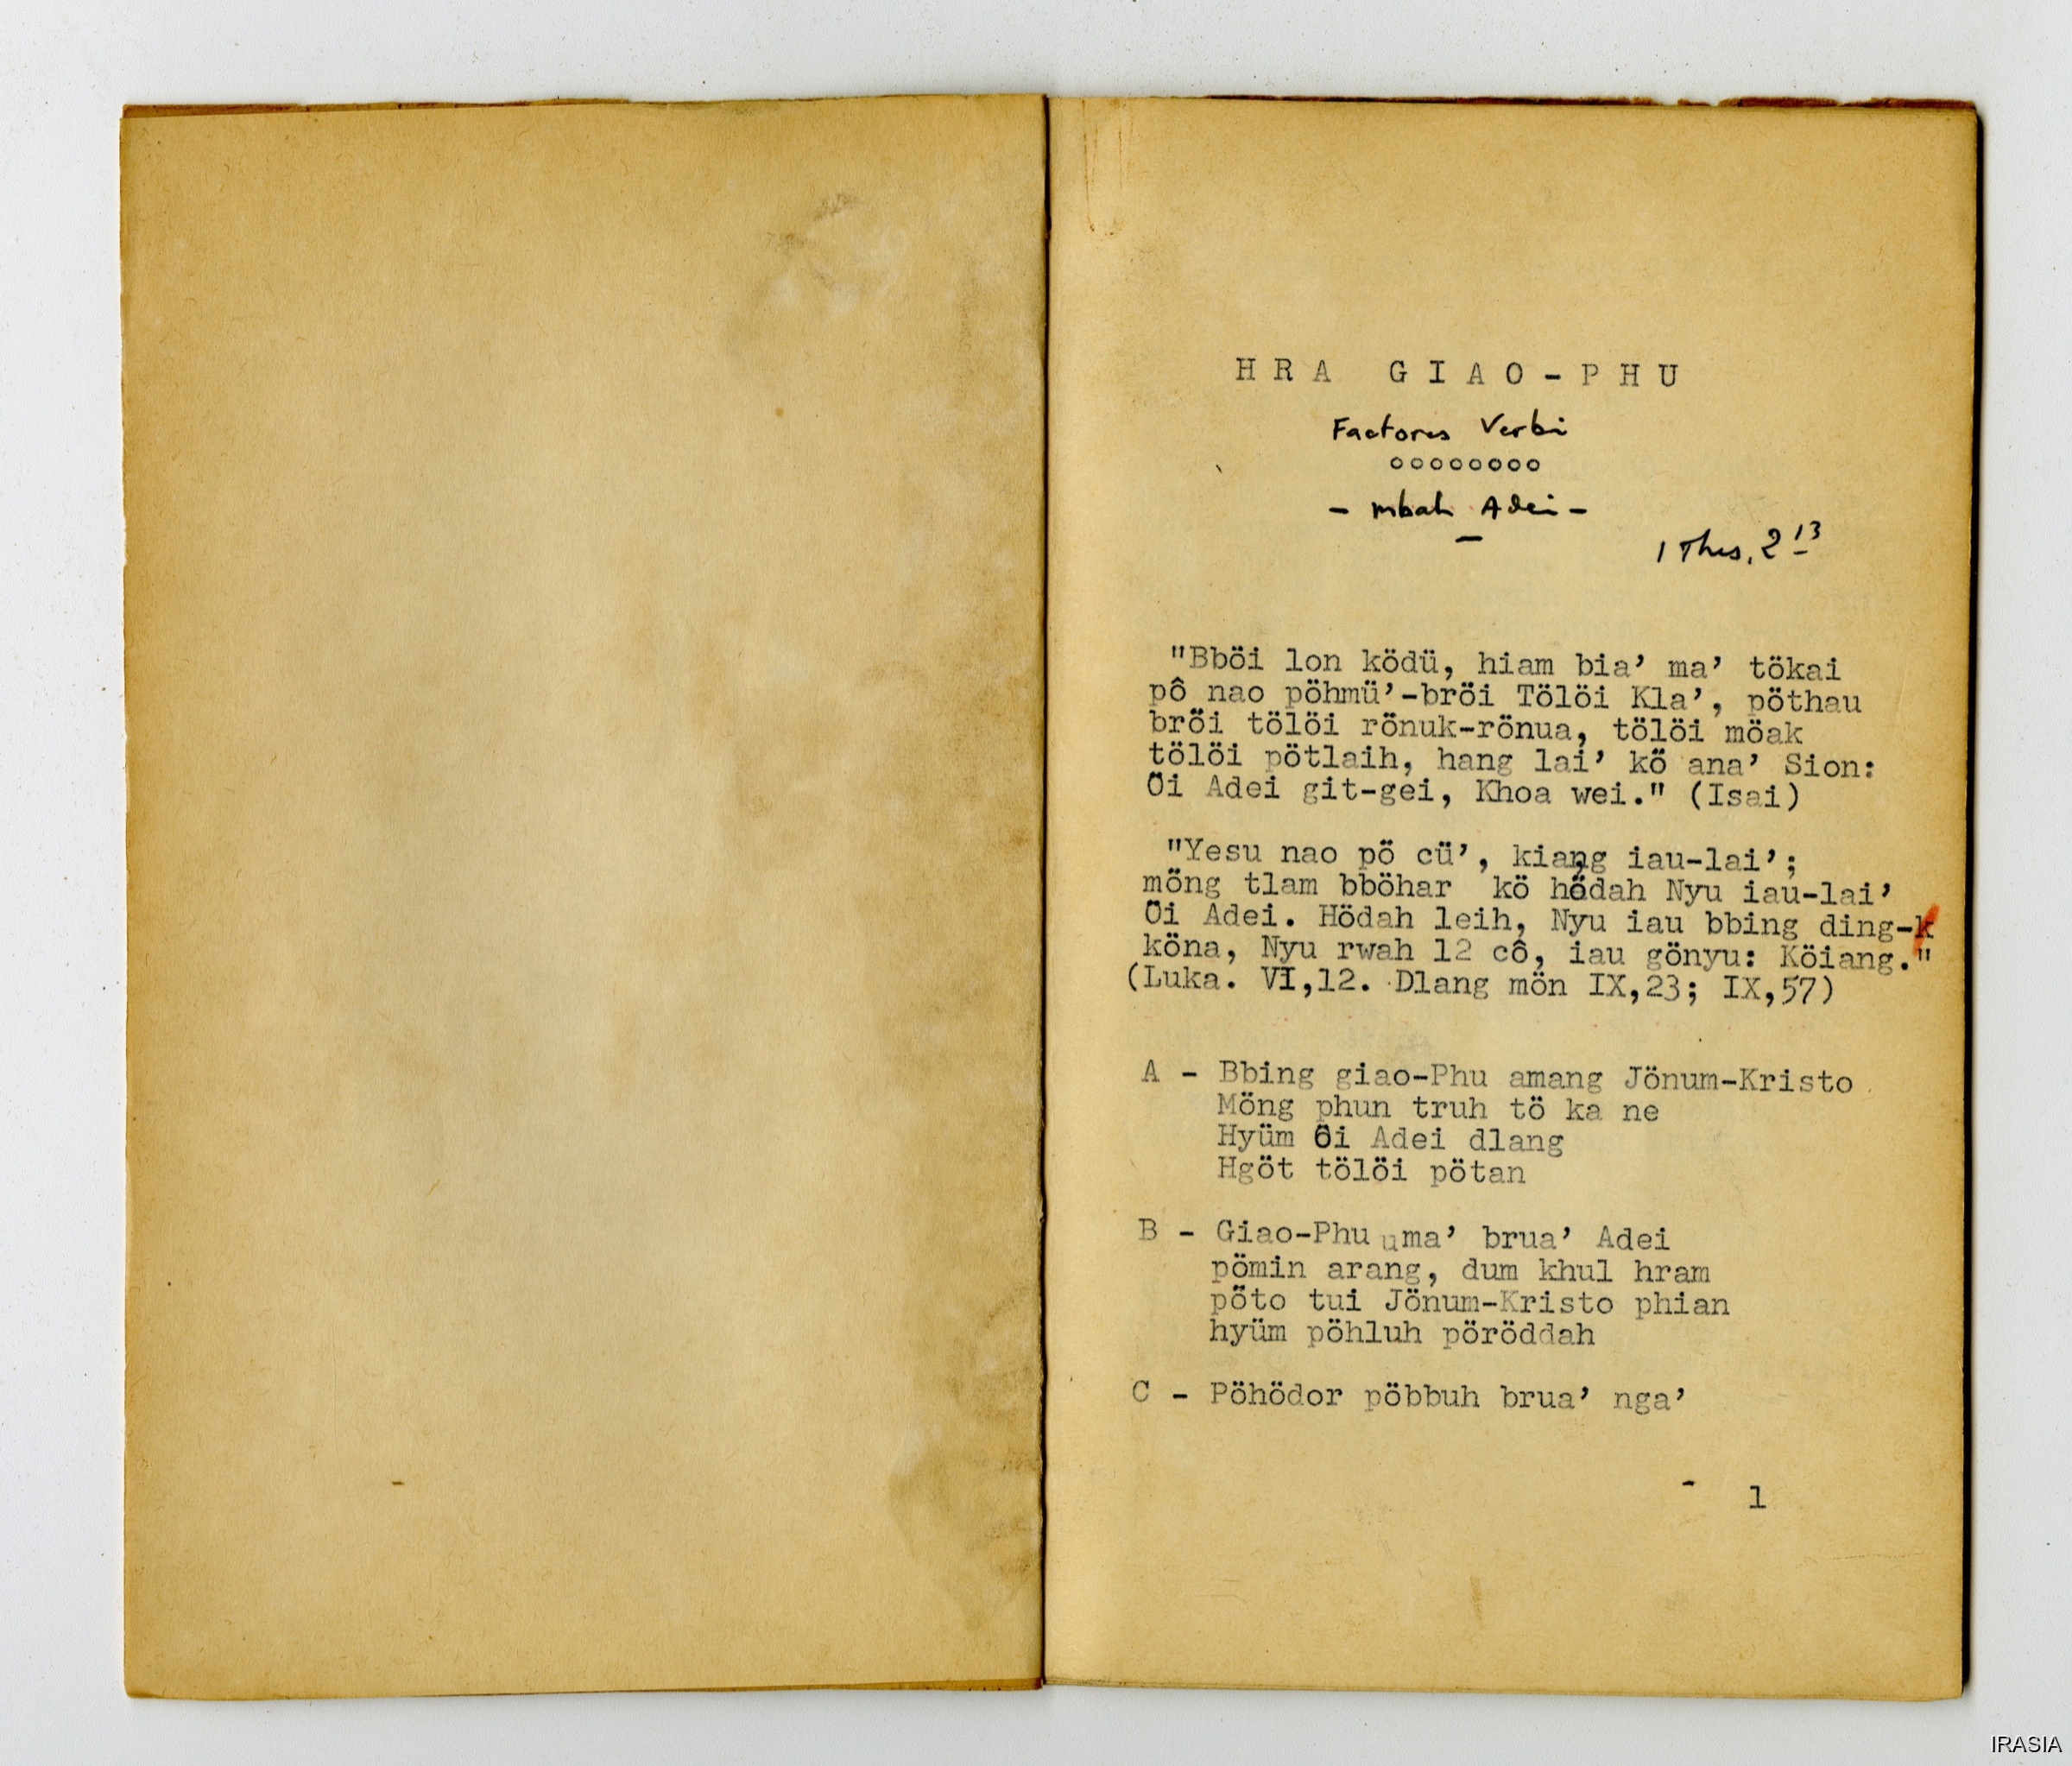 HRA GIAO-PHU
Factores Verbi
oooooooo
- mbah Adei -
1 Thes, 2 13
"Bböi lon ködü, hiam bia’ ma’ tökai
pô nao pöhmü’-bröi Tölöi Kla’, pöthau
bröi tölöi rönuk-rönua, tölöi möak
tölöi pötlaih, hang lai’ kö ana’ Sion:
Öi Adei git-gei, Khoa wei." (Isai)
"Yesu nao pö cü’, kiang iau-lai’;
möng tlam bböhar kö hödah Nyu iau-lai’
Öi Adei. Hödah leih, Nyu iau bbing ding-k
köna, Nyu rwah 12 cô, iau gönyu: Köiang."
(Luka. VI,12. Dlang mön IX,23; IX,57)
A - Bbing giao-Phu amang Jönum-Kristo
Möng phun truh tö ka ne
Hyüm Öi Adei dlang
Hgöt tölöi pötan
B - Giao-Phu uma’ brua’ Adei
pömin arang, dum khul hram
pöto tui Jönum-Kristo phian
hyüm pöhluh pöröddah
C - Pöhödor pöbbuh brua’ nga’
1
IRASIA